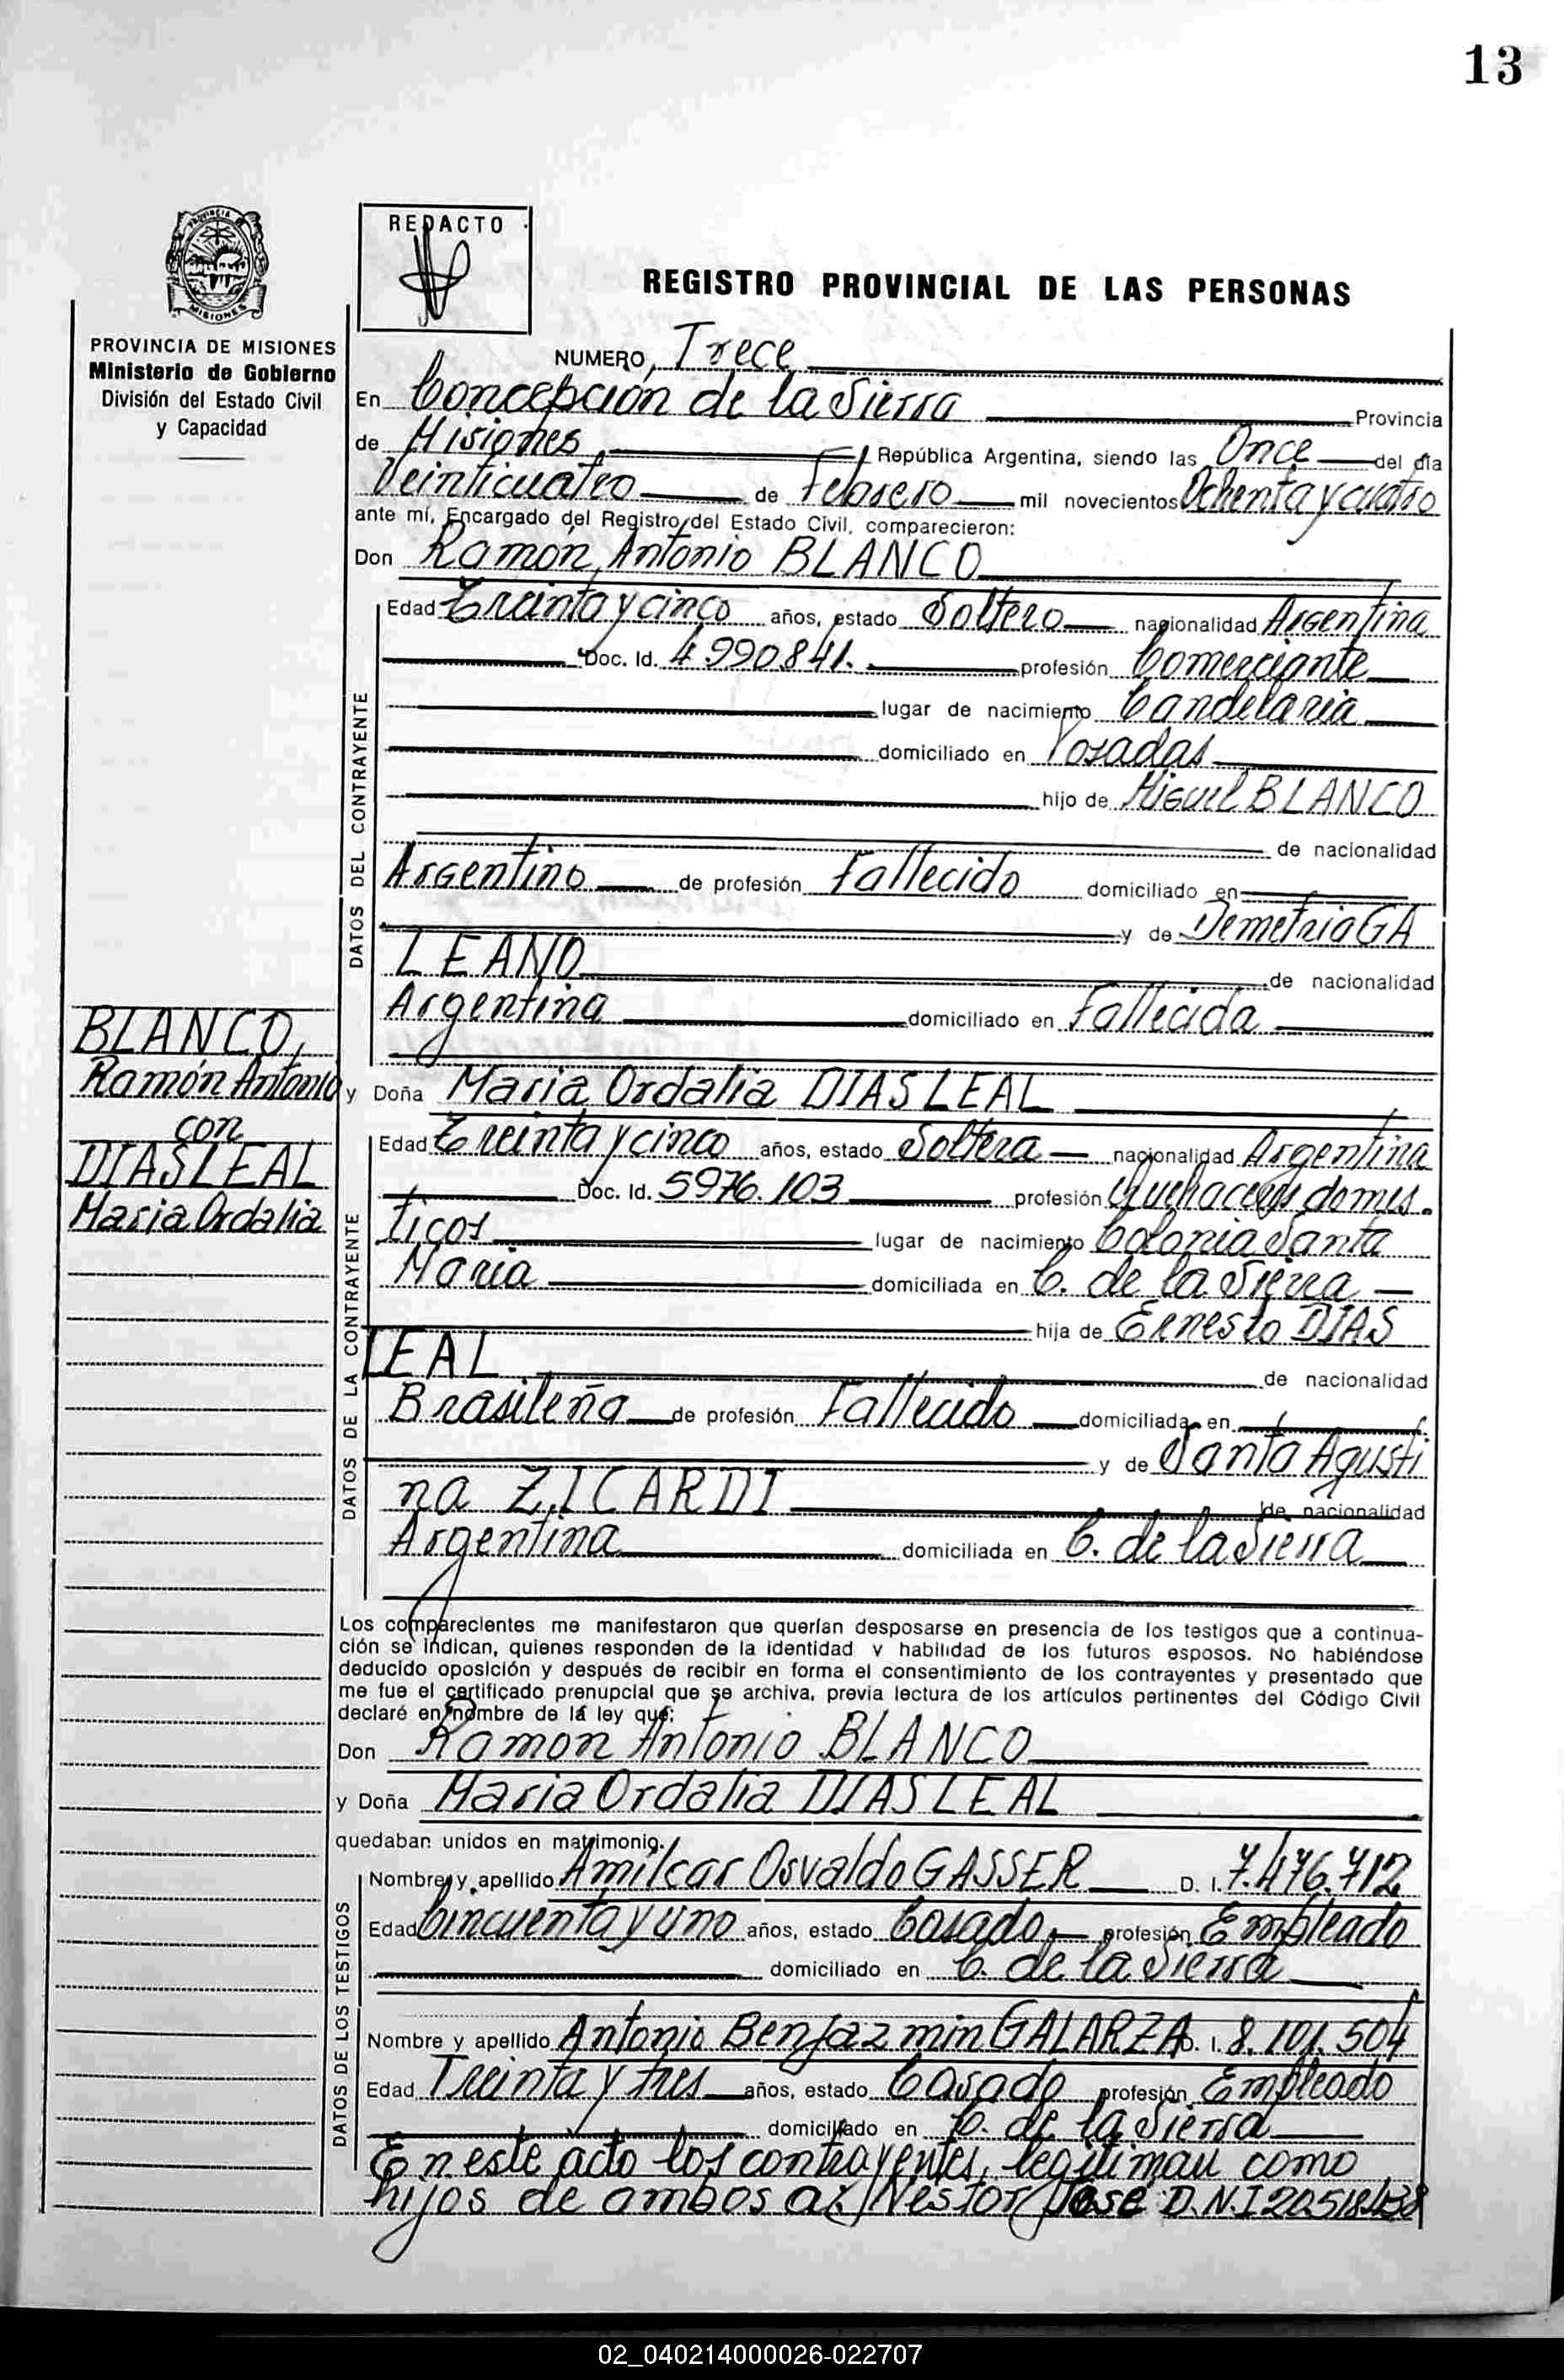 13
REDACTO
REGISTRO PROVINCIAL DE LAS PERSONAS
PROVINCIA DE MISIONES
Ministerio de Gobierno
División del Estado Civil
y Capacidad
NUMERO, Trece
En Concepción de la Sierra Provincia
de Misiones República Argentina, siendo las Once del día
Veinticuatro de Febrero mil novecientos Ochenta y cuatro
ante mí, Encargado del Registro del Estado Civil, comparecieron:
Don Ramón Antonio BLANCO
DATOS DEL CONTRAYENTE
Edad Treinta y cinco años, estado Soltero nacionalidad Argentina
Doc. Id. 4.990.841. profesión Comerciante
lugar de nacimiento Candelaria
domiciliado en Posadas
hijo de Miguel BLANCO
de nacionalidad
Argentino de profesión Fallecido domiciliado en
y de Demetria GA
LEANO de nacionalidad
Argentina domiciliado en Fallecida
BLANCO,
Ramón Antonio
con
DIAS LEAL
Maria Ordalia
y Doña Maria Ordalia DIAS LEAL
DATOS DE LA CONTRAYENTE
Edad Treinta y cinco años, estado Soltera nacionalidad Argentina
Doc. Id. 5976.103 profesión Quehaceres domés.
ticos lugar de nacimiento Colonia Santa
Maria domiciliada en C. de la Sierra
hija de Ernesto DIAS
LEAL de nacionalidad
Brasileña de profesión Fallecido domiciliada en
y de Santa Agusti
na ZICARDI de nacionalidad
Argentina domiciliada en C. de la Sierra
Los comparecientes me manifestaron que querían desposarse en presencia de los testigos que a continua-
ción se indican, quienes responden de la identidad y habilidad de los futuros esposos. No habiéndose
deducido oposición y después de recibir en forma el consentimiento de los contrayentes y presentado que
me fue el certificado prenupcial que se archiva, previa lectura de los artículos pertinentes del Código Civil
declaré en nombre de la ley que:
Don Ramon Antonio BLANCO
y Doña Maria Ordalia DIAS LEAL
quedaban unidos en matrimonio.
DATOS DE LOS TESTIGOS
Nombre y apellido Amilcar Osvaldo GASSER D. I. 7.476.712
Edad Cincuenta y uno años, estado Casado profesión Empleado
domiciliado en C. de la Sierra
Nombre y apellido Antonio Benjazmin GALARZA D. I. 8.101.504
Edad Treinta y tres años, estado Casado profesión Empleado
domiciliado en C. de la Sierra
En este acto los contrayentes, legitiman como
hijos de ambos a: Nestor Jose D.N.I 20.518.438
02_040214000026-022707